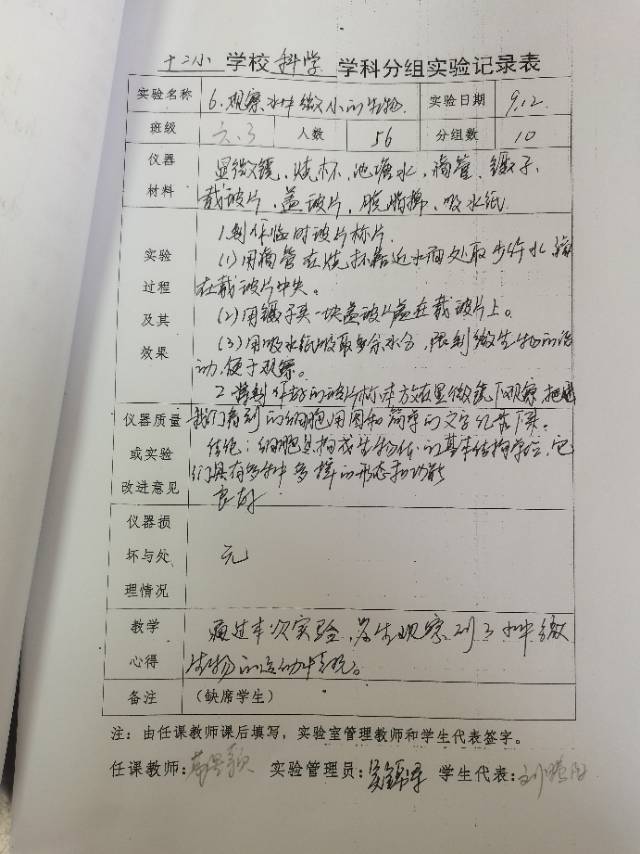 十二小 学校 科学 学科分组实验记录表
实验名称 6.观察水中微小的生物 实验日期 9.12.
班级 六.3 人数 56 分组数 10
仪器材料 显微镜、烧杯、池塘水、滴管、镊子、
载玻片、盖玻片、脱脂棉、吸水纸
实验过程及其效果 1.制作临时玻片标片
(1)用滴管在烧杯靠近水面处取少许水,滴
在载玻片中央。
(2)用镊子夹一块盖玻片盖在载玻片上。
(3)用吸水纸吸取多余水分,限制微生物的活
动,便于观察。
2.将制作好的玻片标本放在显微镜下观察,把
仪器质量或实验改进意见 我们看到的细胞用图和简单的文字记录下来。
结论:细胞是构成生物体的基本结构单位,它
们具有多种多样的形态和功能
良好
仪器损坏与处理情况 无
教学心得 通过本次实验,学生观察到了水中微
生物的运动情况。
备注 (缺席学生)
注:由任课教师课后填写,实验室管理教师和学生代表签字。
任课教师: 实验管理员: 学生代表: